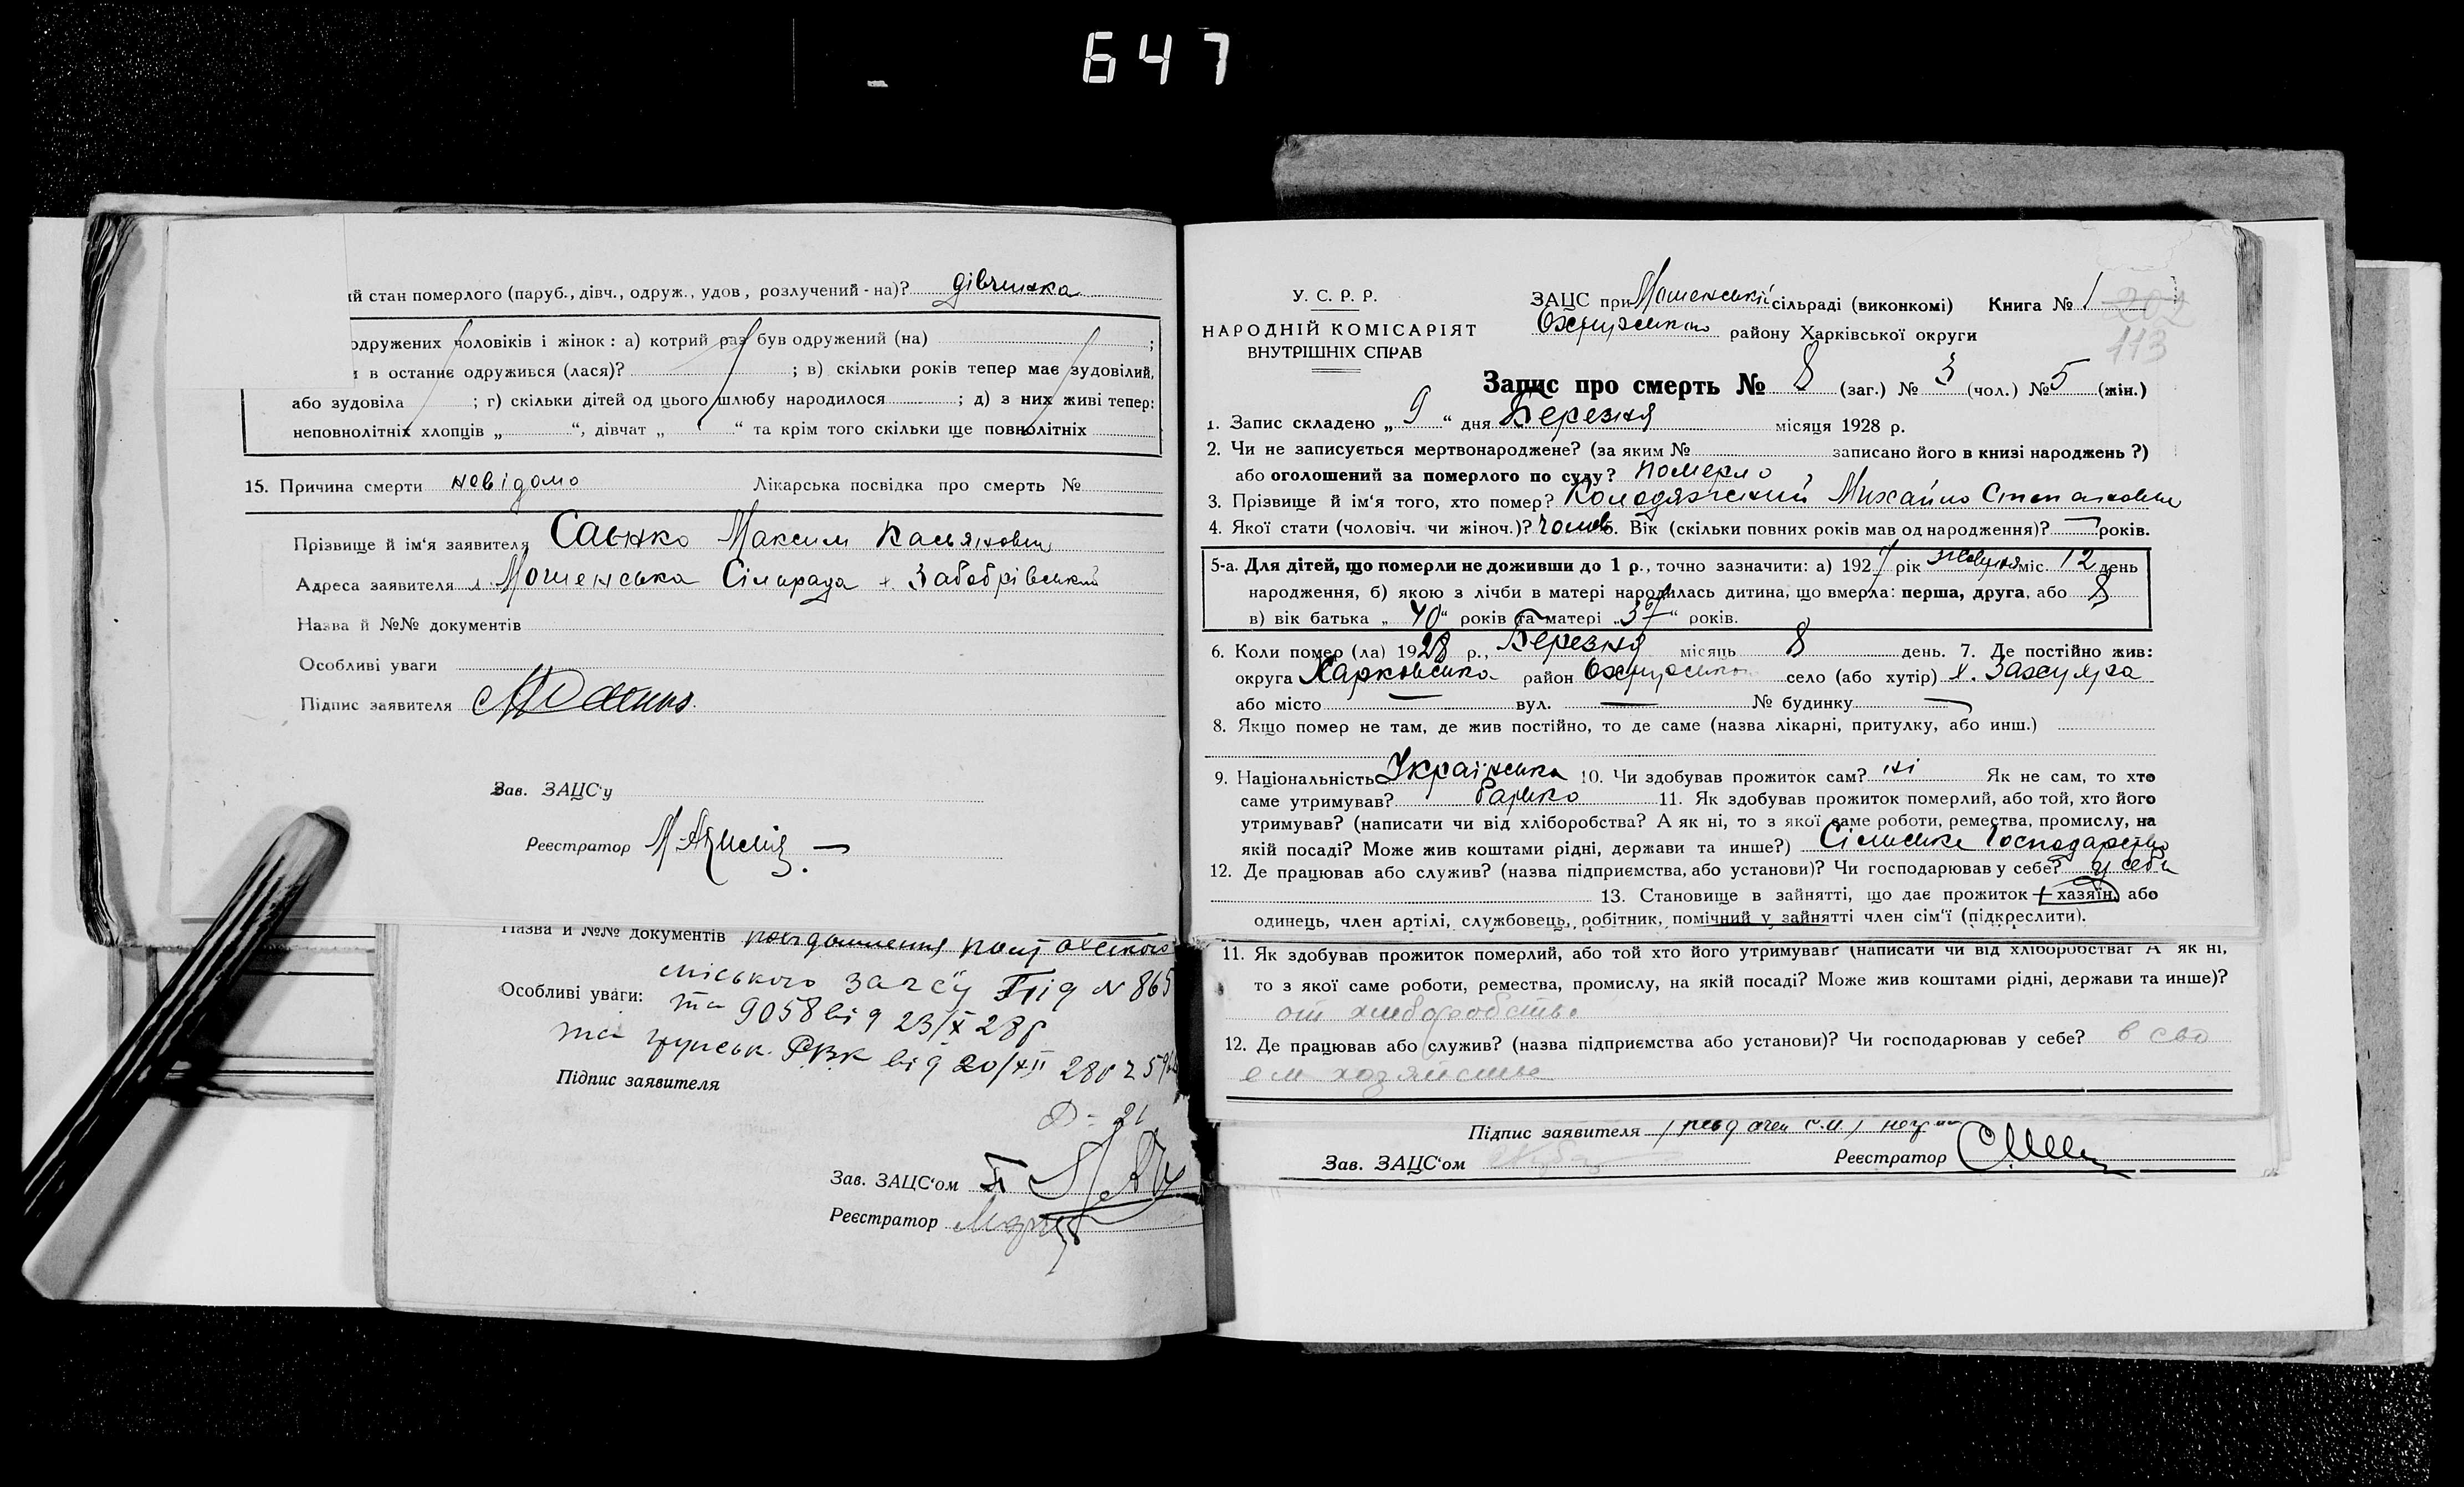 647
ій стан померлого (паруб., дівч., одруж., удов, розлучений - на)? дівчинка
одружених чоловіків і жінок: а) котрий раз був одружений (на) ;
и в останнє одружився (лася)? ; в) скільки років тепер має зудовілий,
або зудовіла ; г) скільки дітей од цього шлюбу народилося ; д) з них живі тепер:
неповнолітніх хлопців „ “, дівчат „ “ та крім того скільки ще повнолітніх
15. Причина смерти невідомо Лікарська посвідка про смерть №
Прізвище й ім'я заявителя Саєнко Максим Касьянович
Адреса заявителя Мошенська Сільрада х. Забобрівський
Назва й №№ документів
Особливі уваги
Підпис заявителя
Зав. ЗАЦС'у
Реєстратор
Назва й №№ документів повідомлення
Особливі уваги: міського загсу під № 865
та 9058 від 23/X 28 р
та РВК від 20/XII 28 р
Підпис заявителя
Зав. ЗАЦС'ом
Реєстратор
У. С. Р. Р.
НАРОДНІЙ КОМІСАРІЯТ
ВНУТРІШНІХ СПРАВ
ЗАЦС при Мошенській сільраді (виконкомі) Книга № 1 202
району Харківської округи
113
Запис про смерть № 8 (заг.) № 3 (чол.) № 5 (жін.)
1. Запис складено „ 9 “ дня Березня місяця 1928 р.
2. Чи не записується мертвонароджене? (за яким № записано його в книзі народжень ?)
або оголошений за померлого по суду? померло
3. Прізвище й ім'я того, хто помер? Колодяжний Михайло Степанович
4. Якої стати (чоловіч. чи жіноч.)? чолов 5. Вік (скільки повних років мав од народження)? — років.
5-а. Для дітей, що померли не доживши до 1 р., точно зазначити: а) 1927 рік жовтня міс. 12 день
народження, б) якою з лічби в матері народилась дитина, що вмерла: перша, друга, або 8
в) вік батька „ 40 “ років та матері „ 37 “ років.
6. Коли помер (ла) 1928 р., Березня місяць 8 день. 7. Де постійно жив:
округа Харковська район село (або хутір) х.
або місто — вул. — № будинку —
8. Якщо помер не там, де жив постійно, то де саме (назва лікарні, притулку, або инш.)
9. Національність Українська 10. Чи здобував прожиток сам? ні Як не сам, то хто
саме утримував? батько 11. Як здобував прожиток померлий, або той, хто його
утримував? (написати чи від хліборобства? А як ні, то з якої саме роботи, ремества, промислу, на
якій посаді? Може жив коштами рідні, держави та инше?) Сільське Господарство
12. Де працював або служив? (назва підприємства, або установи)? Чи господарював у себе? у себе
13. Становище в зайнятті, що дає прожиток + хазяїн, або
одинець, член артілі, службовець, робітник, помічний у зайнятті член сім'ї (підкреслити).
11. Як здобував прожиток померлий, або той хто його утримував? (написати чи від хліборобства? А як ні,
то з якої саме роботи, ремества, промислу, на якій посаді? Може жив коштами рідні, держави та инше)?
от хлеборобства
12. Де працював або служив? (назва підприємства або установи)? Чи господарював у себе? в сво
ем хозяйстве
Підпис заявителя
Зав. ЗАЦС'ом Реєстратор